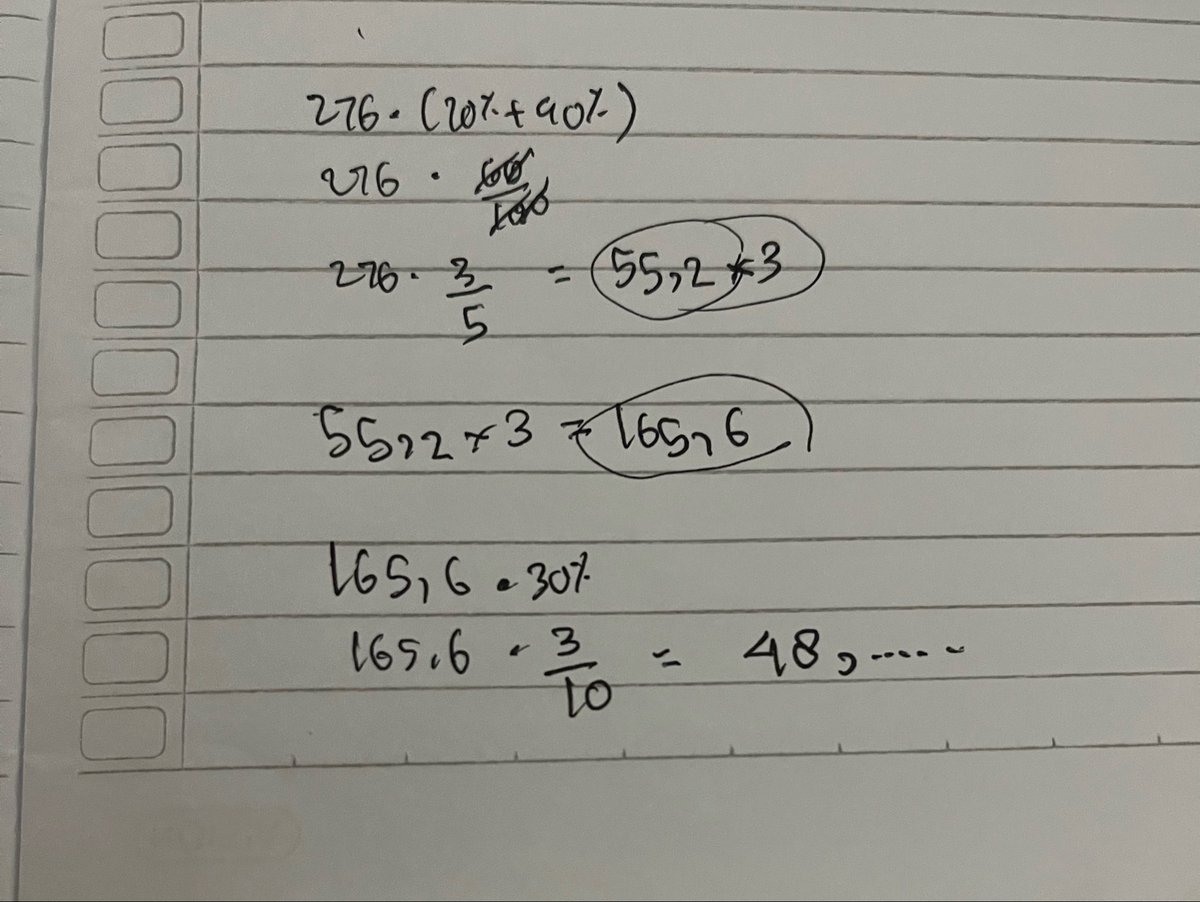 276 · (20% + 40%)
276 · 60/100
276 · 3/5 = 55,2 × 3
55,2 × 3 = 165,6
165,6 · 30%
165,6 · 3/10 = 48,.....